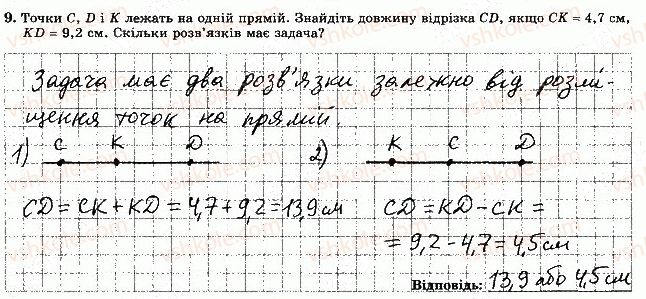 9. Точки C, D і K лежать на одній прямій. Знайдіть довжину відрізка CD, якщо CK = 4,7 см,
KD = 9,2 см. Скільки розв'язків має задача?
Задача має два розв'язки залежно від розмі-
щення точок на прямий.
1) C K D 2) K C D
CD = CK + KD = 4,7 + 9,2 = 13,9 см CD = KD - CK =
= 9,2 - 4,7 = 4,5 см
Відповідь: 13,9 або 4,5 см